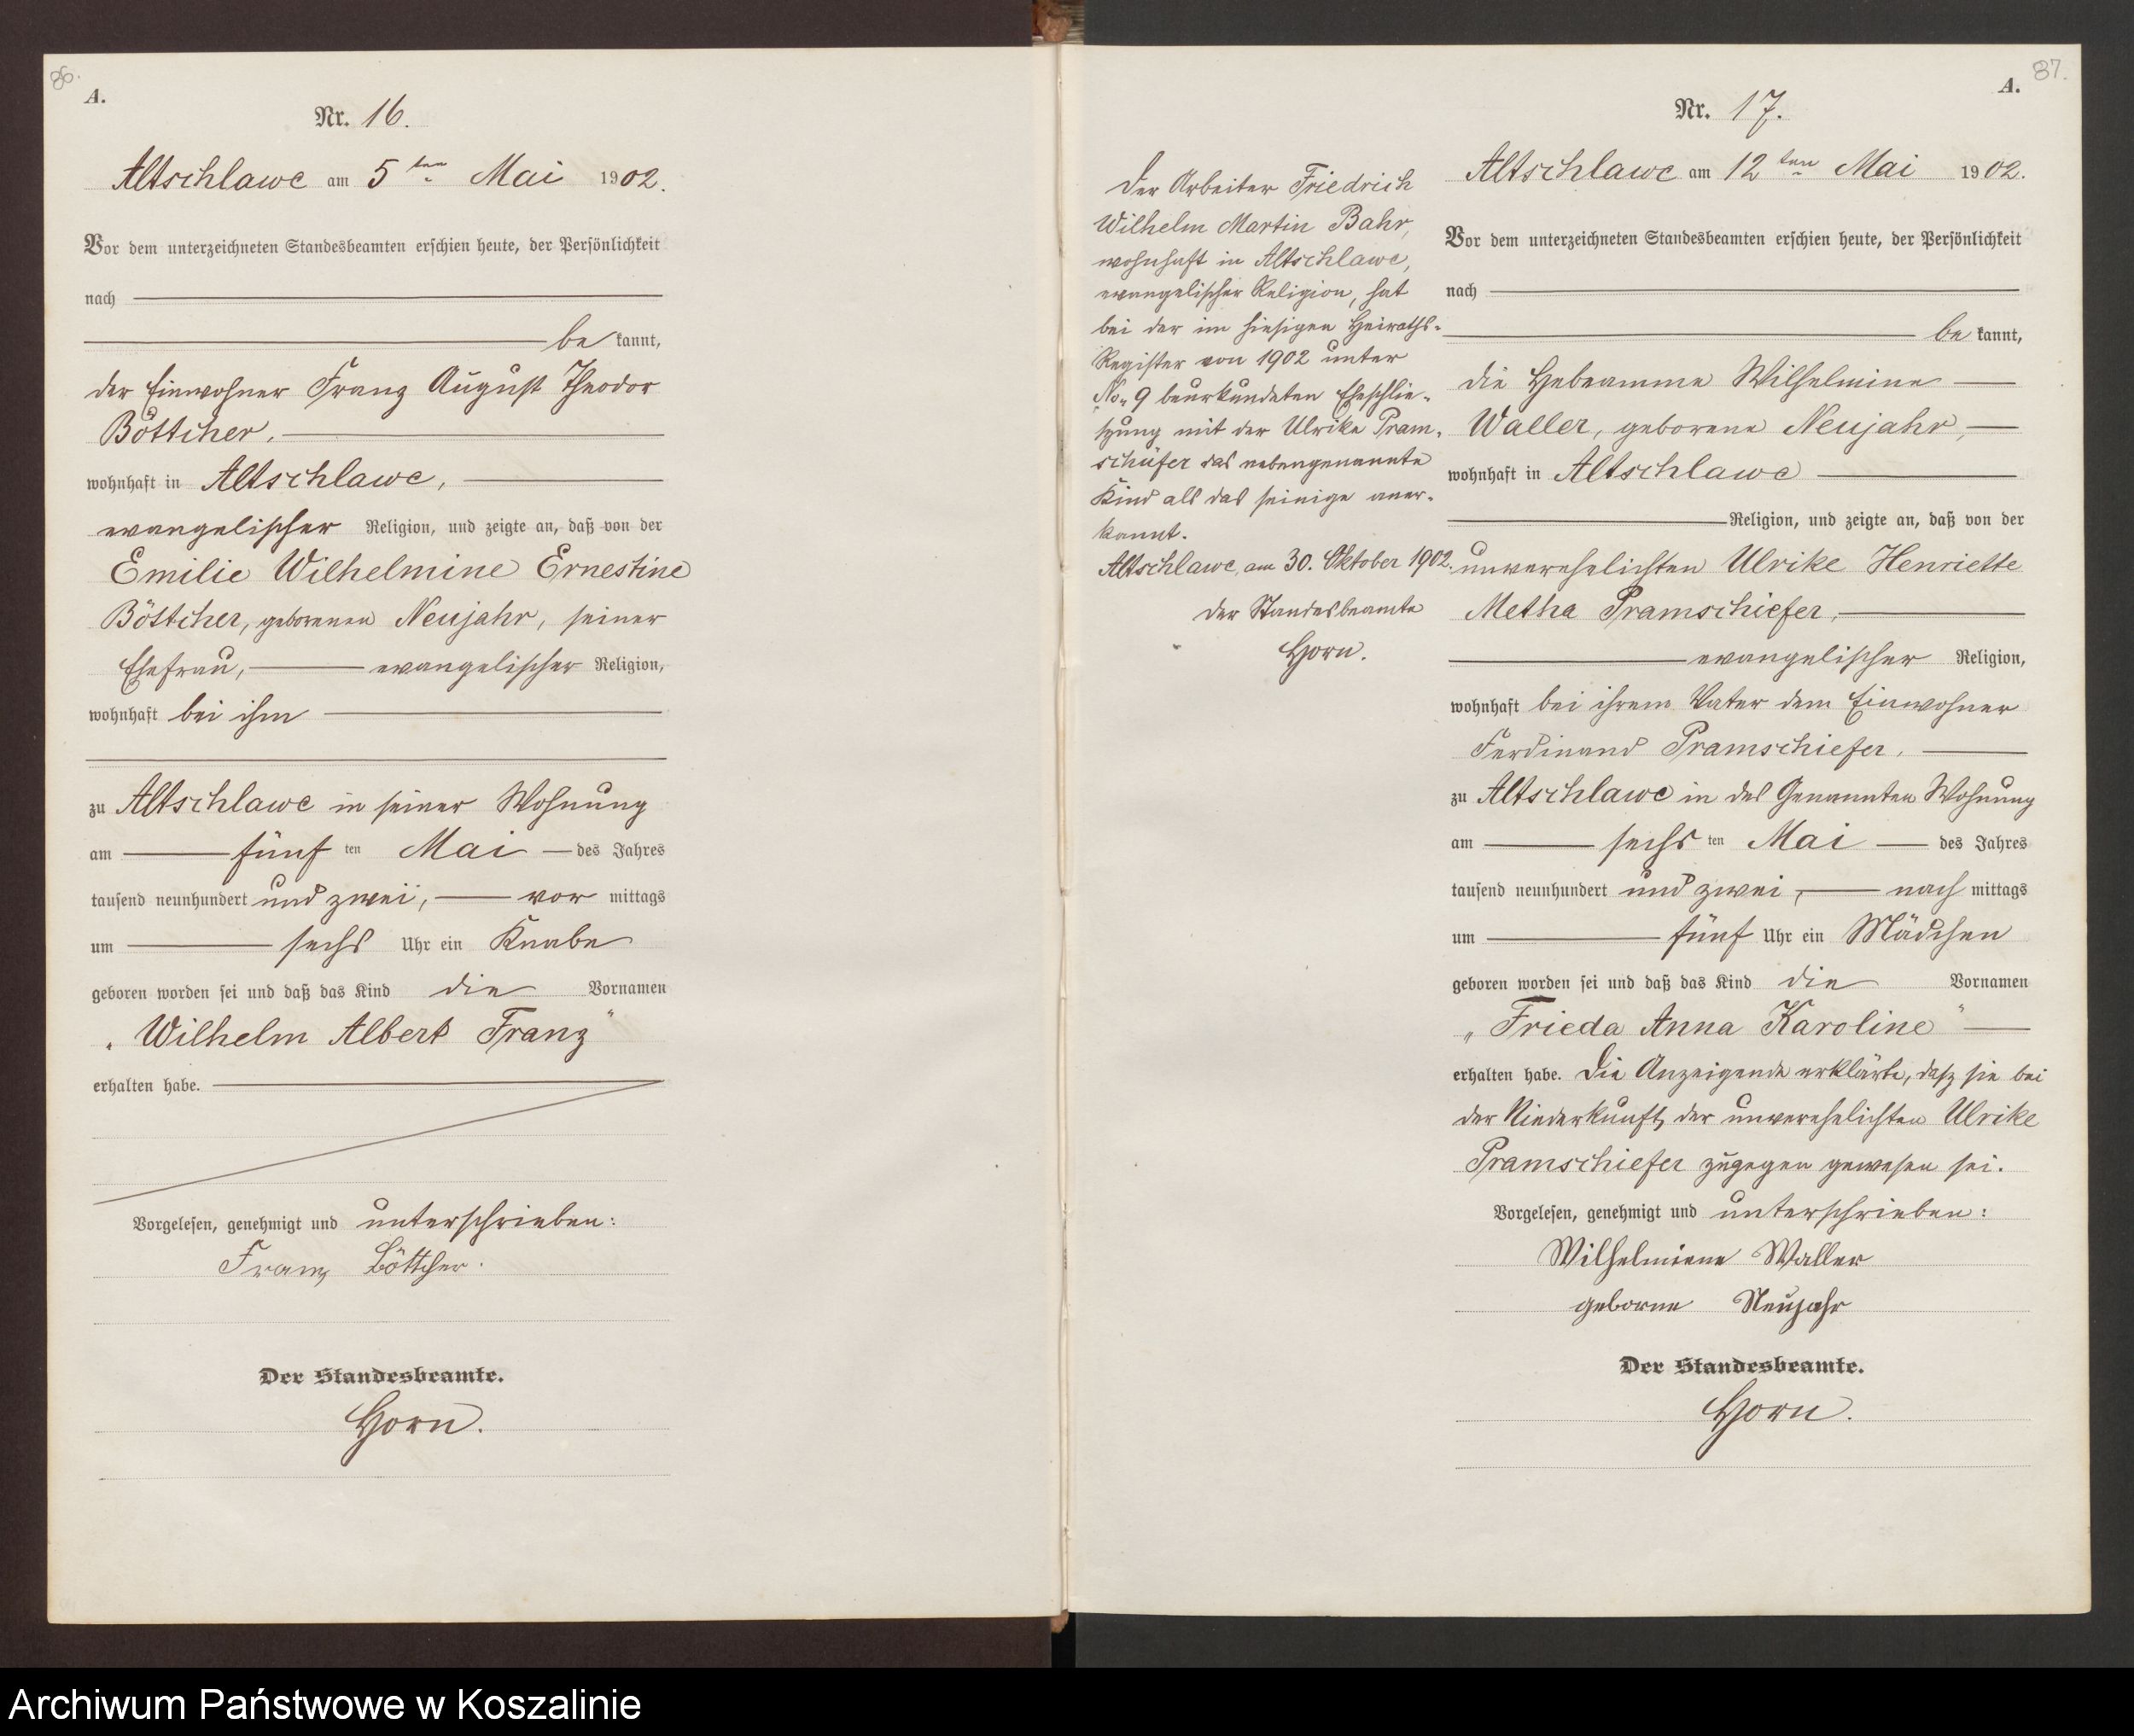 86.
A.
Nr. 16.
Altschlawe am 5ten Mai 1902.
Vor dem unterzeichneten Standesbeamten erschien heute, der Persönlichkeit
nach
be kannt,
der Einwohner Franz August Theodor
Böttcher,
wohnhaft in Altschlawe,
evangelischer Religion, und zeigte an, daß von der
Emilie Wilhelmine Ernestine
Böttcher, geborenen Neujahr, seiner
Ehefrau, evangelischer Religion,
wohnhaft bei ihm
zu Altschlawe in seiner Wohnung
am fünf ten Mai des Jahres
tausend neunhundert und zwei, vor mittags
um sechs Uhr ein Knabe
geboren worden sei und daß das Kind die Vornamen
„Wilhelm Albert Franz"
erhalten habe.
Vorgelesen, genehmigt und unterschrieben:
Franz Böttcher.
Der Standesbeamte.
Horn.
87.
A.
Nr. 17.
Der Arbeiter Friedrich
Wilhelm Martin Bahr,
wohnhaft in Altschlawe,
evangelischer Religion, hat
bei der im hiesigen Heiraths-
Register von 1902 unter
No. 9 beurkundeten Eheschlie-
szung mit der Ulrike Pram-
schüfer das nebengenannte
Kind als das seinige aner-
kannt.
Altschlawe, am 30. Oktober 1902.
Der Standesbeamte
Horn.
Altschlawe am 12ten Mai 1902.
Vor dem unterzeichneten Standesbeamten erschien heute, der Persönlichkeit
nach
be kannt,
die Hebeamme Wilhelmine
Waller, geborene Neujahr,
wohnhaft in Altschlawe
Religion, und zeigte an, daß von der
unverehelichten Ulrike Henriette
Metha Pramschiefer,
evangelischer Religion,
wohnhaft bei ihrem Vater dem Einwohner
Ferdinand Pramschiefer,
zu Altschlawe in des Genannten Wohnung
am sechs ten Mai des Jahres
tausend neunhundert und zwei, nach mittags
um fünf Uhr ein Mädchen
geboren worden sei und daß das Kind die Vornamen
„Frieda Anna Karoline"
erhalten habe. Die Anzeigende erklärte, dasz sie bei
der Niederkunft der unverehelichten Ulrike
Pramschiefer zugegen gewesen sei.
Vorgelesen, genehmigt und unterschrieben:
Wilhelmiene Waller
geborne Neujahr
Der Standesbeamte.
Horn.
Archiwum Państwowe w Koszalinie